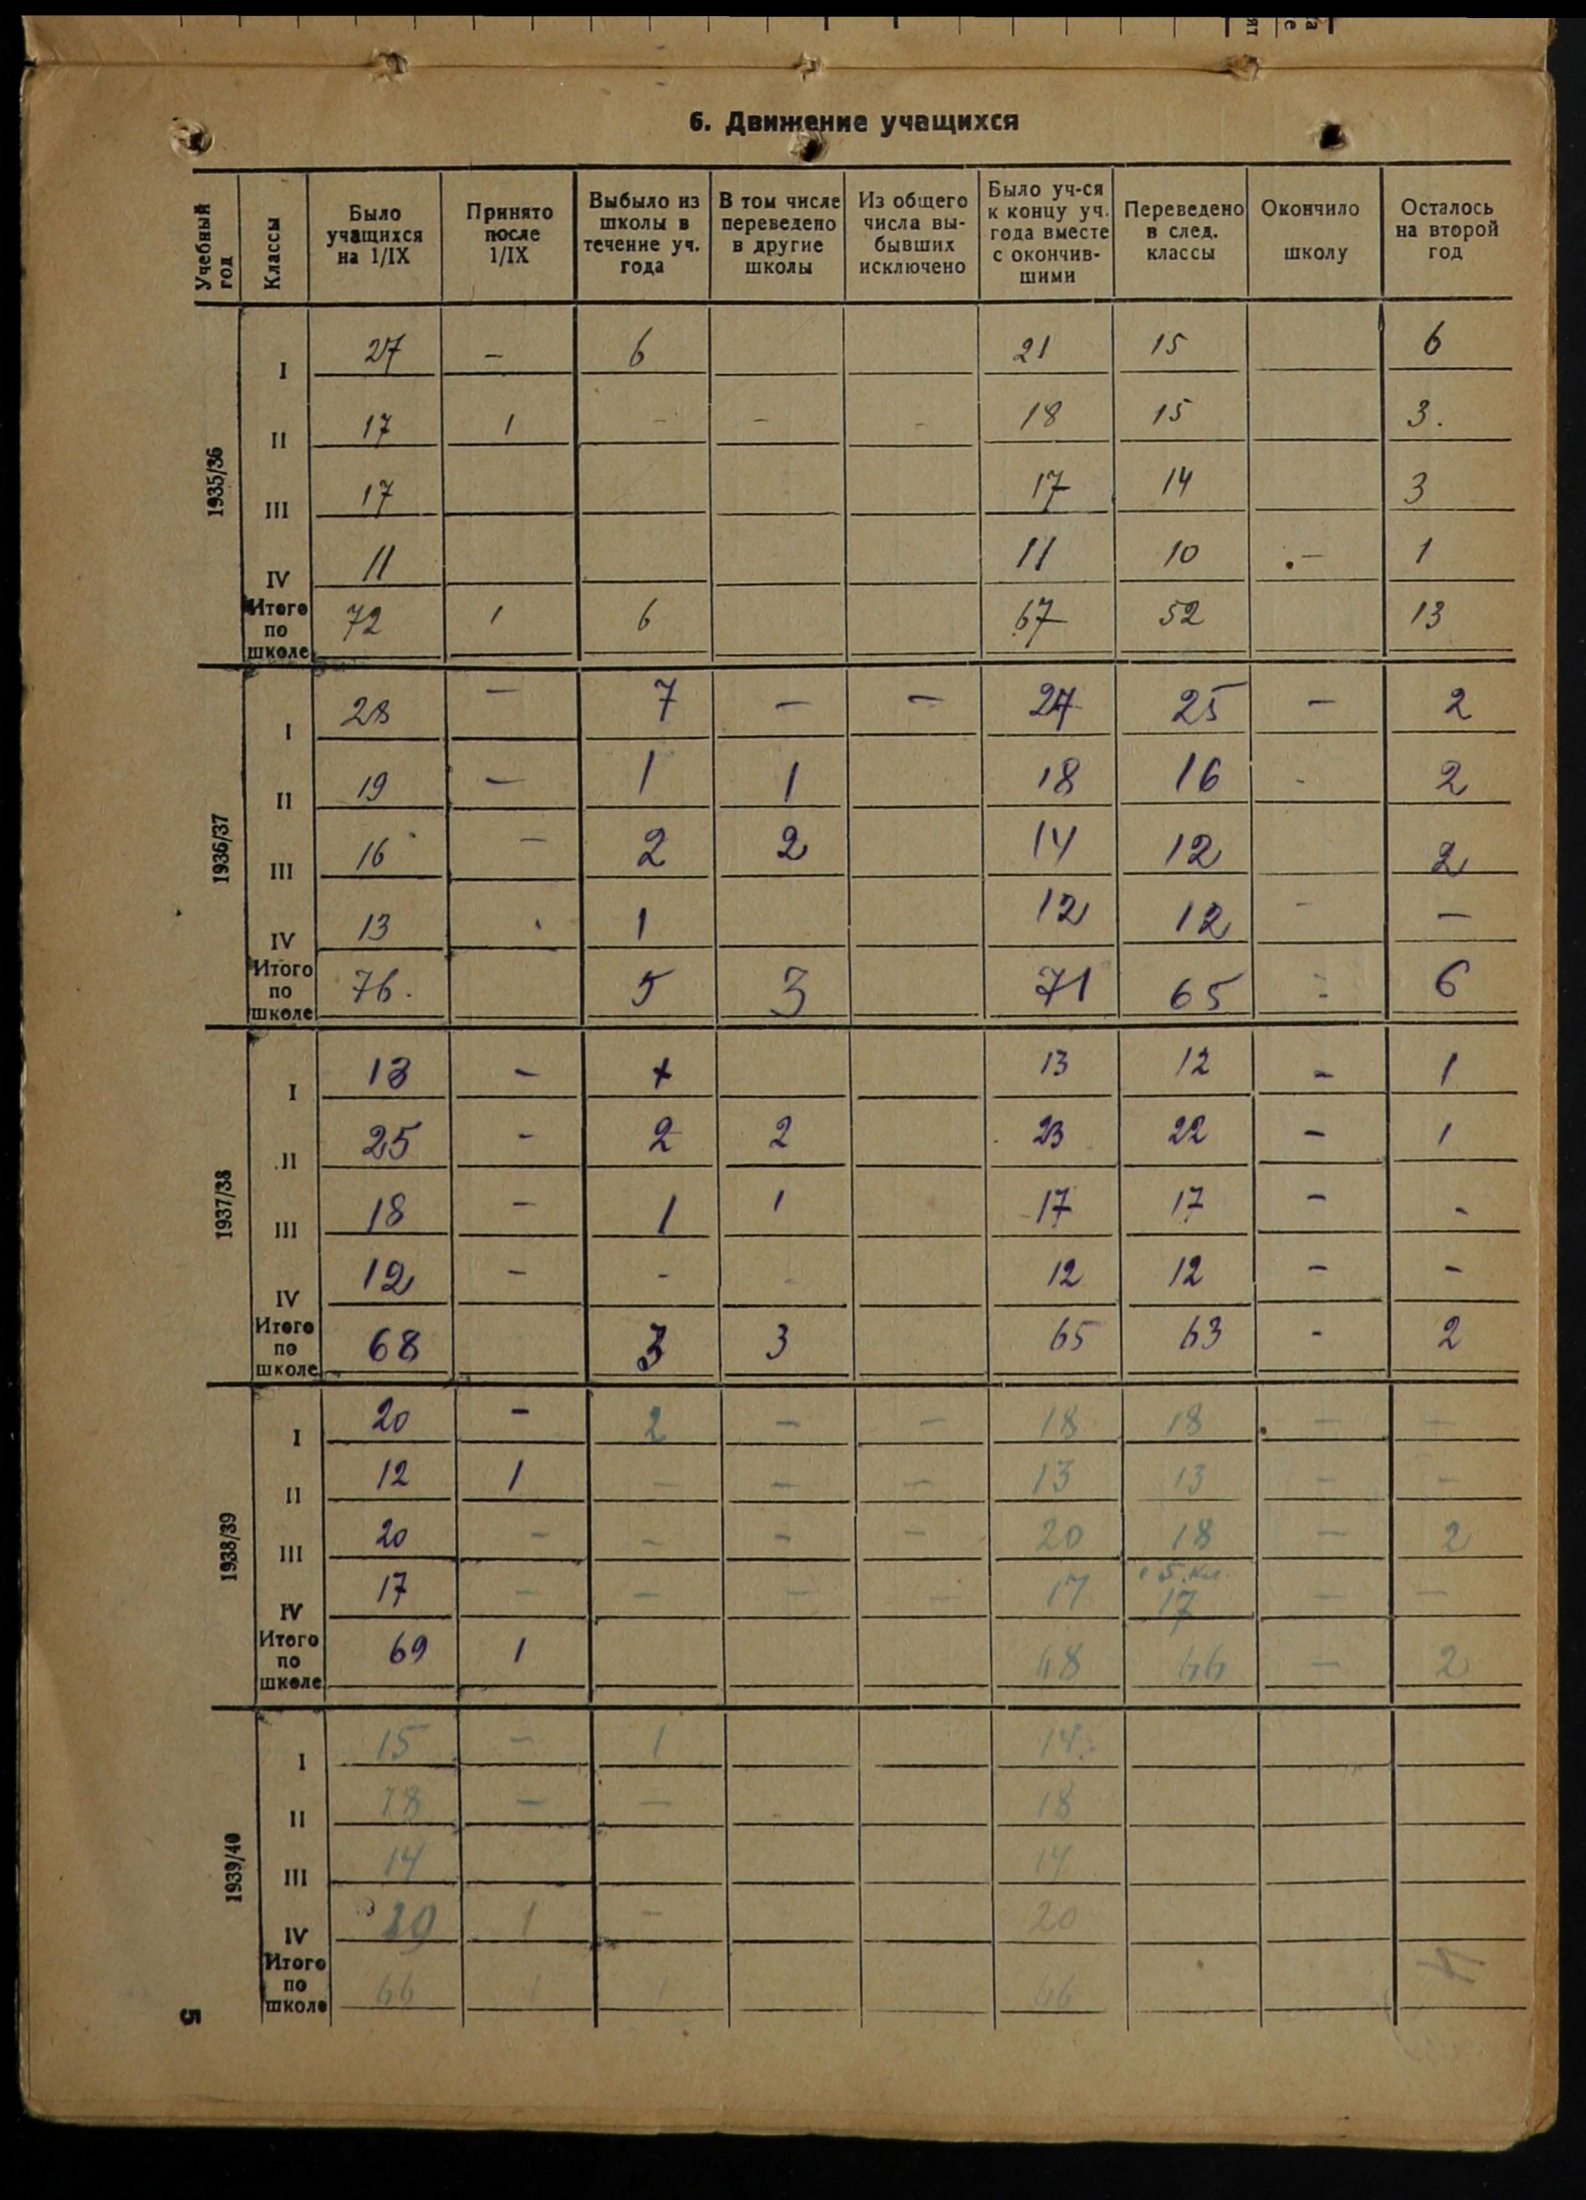 6. Движение учащихся
Учебный год | Классы | Было учащихся на 1/IX | Принято после 1/IX | Выбыло из школы в течение уч. года | В том числе переведено в другие школы | Из общего числа выбывших исключено | Было уч-ся к концу уч. года вместе с окончившими | Переведено в след. классы | Окончило школу | Осталось на второй год
1935/36
I 27 — 6 21 15 6
II 17 1 - - - 18 15 3.
III 17 17 14 3
IV 11 11 10 — 1
Итого по школе 72 1 6 67 52 13
1936/37
I 28 — — — 25 — 2
II 19 — 1 1 18 16 - 2
III 16 — 2 2 14 12 2
IV 13 1 12 12 - —
Итого по школе 76. 5 3 71 65 - 6
1937/38
I 13 - 13 12 - 1
II 25 - 2 2 23 22 - 1
III 18 - 1 1 17 17 - -
IV 12 - - - 12 12 - -
Итого по школе 68 3 3 65 63 - 2
1938/39
I 20 - 2 — — 18 18 — —
II 12 1 — — — 13 13 — —
III 20 - - - - 20 18 — 2
IV 17 — — — — 17 в 5 кл. 17 — —
Итого по школе 69 1 68 66 — 2
1939/40
I 15 — 1 14
II 18 — — 18
III 14 14
IV 1 — 20
Итого по школе 66 1 1 66
5